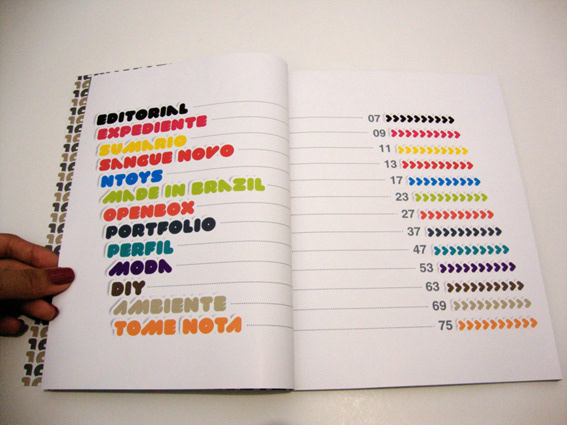 EDITORIAL 07
EXPEDIENTE 09
SUMARIO 11
SANGUE NOVO 13
NTOYS 17
MADE IN BRAZIL 23
OPENBOX 27
PORTFOLIO 37
PERFIL 47
MODA 53
DIY 63
AMBIENTE 69
TOME NOTA 75